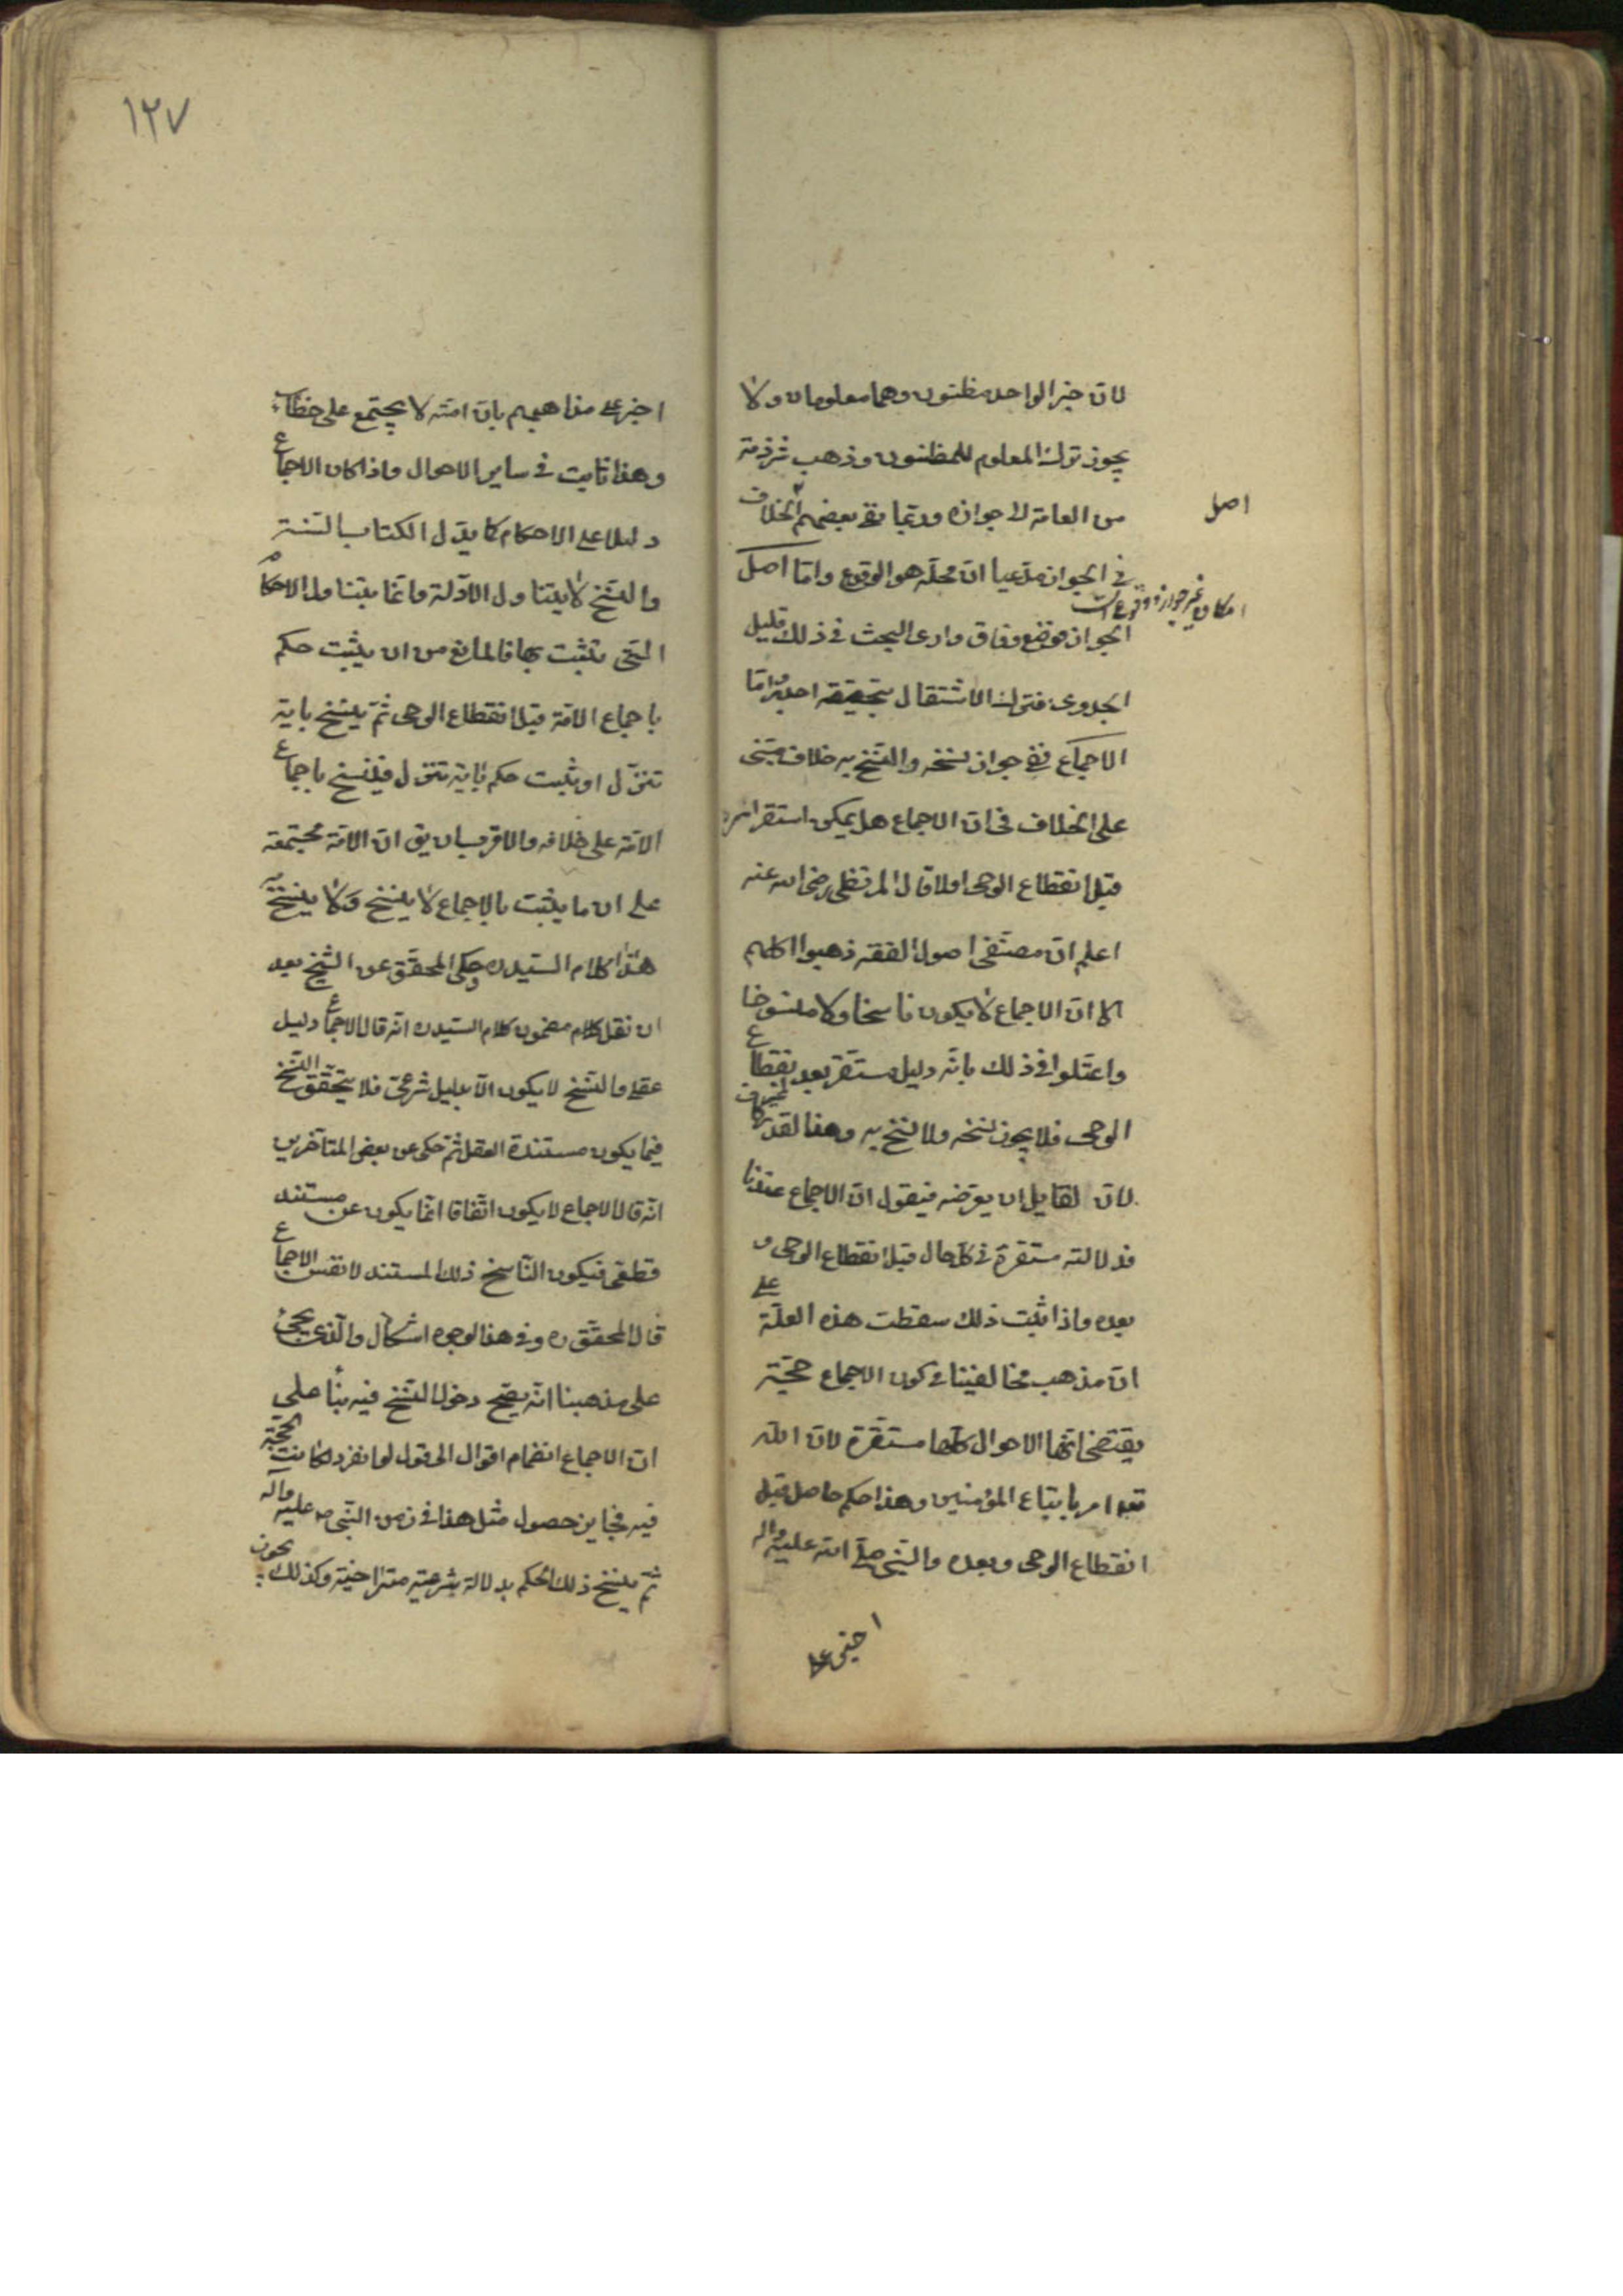 لان خبر الواحد مظنون وهما معلومان ولا
يجوز ترك المعلوم للمظنون وذهب شرذمة
من العامة الى جوازه وربما نفى بعضهم الخلاف
في الجواز مدعيا ان محله هو الوقوع واما اصل
الجواز فموضع وفاق وارى البحث في ذلك قليل
الجدوى فترك الاشتغال بتحقيقه احرى واما
الاجماع ففي جواز نسخه والنسخ به خلاف مبنى
على الخلاف في ان الاجماع هل يمكن استقراره
قبل انقطاع الوحى اولا قال المرتضى رضي الله عنه
اعلم ان مصنفى اصول الفقه ذهبوا كلهم
الى ان الاجماع لا يكون ناسخا ولا منسوخا
واعتلوا في ذلك بانه دليل مستقر بعد انقطاع
الوحى فلا يجوز نسخه ولا النسخ به وهذا القدر غير كاف
لان لقايل ان يعترضه فيقول ان الاجماع عندنا
فدلالته مستقرة في كل حال قبل انقطاع الوحى و
بعده واذا ثبت ذلك سقطت هذه العلة على
ان مذهب مخالفينا في كون الاجماع حجة
يقتضى انها الاحوال كلها مستقرة لان الله
تعالى امر باتباع المؤمنين وهذا حكم حاصل قبل
انقطاع الوحى وبعده والنبى صلى الله عليه واله
اصل
امكان غير جوازه وقوع
١٢٧
اخبر على مذاهبهم بان امته لا يجتمع على خطاء
وهذا ثابت في ساير الاحوال واذا كان الاجماع
دليلا على الاحكام كما يدل الكتاب والسنة
والنسخ لا يتناول الادلة وانما يتناول الاحكام
التى تثبت بها فالمانع من ان يثبت حكم
باجماع الامة قبل انقطاع الوحى ثم ينسخ باية
تنزل او يثبت حكم باية تنزل فينسخ باجماع
الامة على خلافه والاقرب ان يق ان الامة مجتمعة
على ان ما يثبت بالاجماع لا ينسخ ولا ينسخ به
هذا كلام السيد ره وحكى المحقق عن الشيخ بعد
ان نقل كلام مضمون كلام السيد ره انه قال الاجماع دليل
عقلى والنسخ لا يكون الا بدليل شرعى فلا يتحقق النسخ
فيما يكون مستنده العقل ثم حكى عن بعض المتاخرين
انه قال الاجماع لا يكون اتفاقا انما يكون عن مستند
قطعى فيكون الناسخ ذلك المستند لا نفس الاجماع
قال المحقق ره وفي هذا الوجوه اشكال والذى يجئ
على مذهبنا انه يصح دخول النسخ فيه بناء على
ان الاجماع انضمام اقوال الى قول لو انفرد لكانت الحجة
فيه فجايز حصول مثل هذا في زمن النبى ص عليه واله
ثم ينسخ ذلك الحكم بدلالة شرعية متراخية وكذلك يجوز